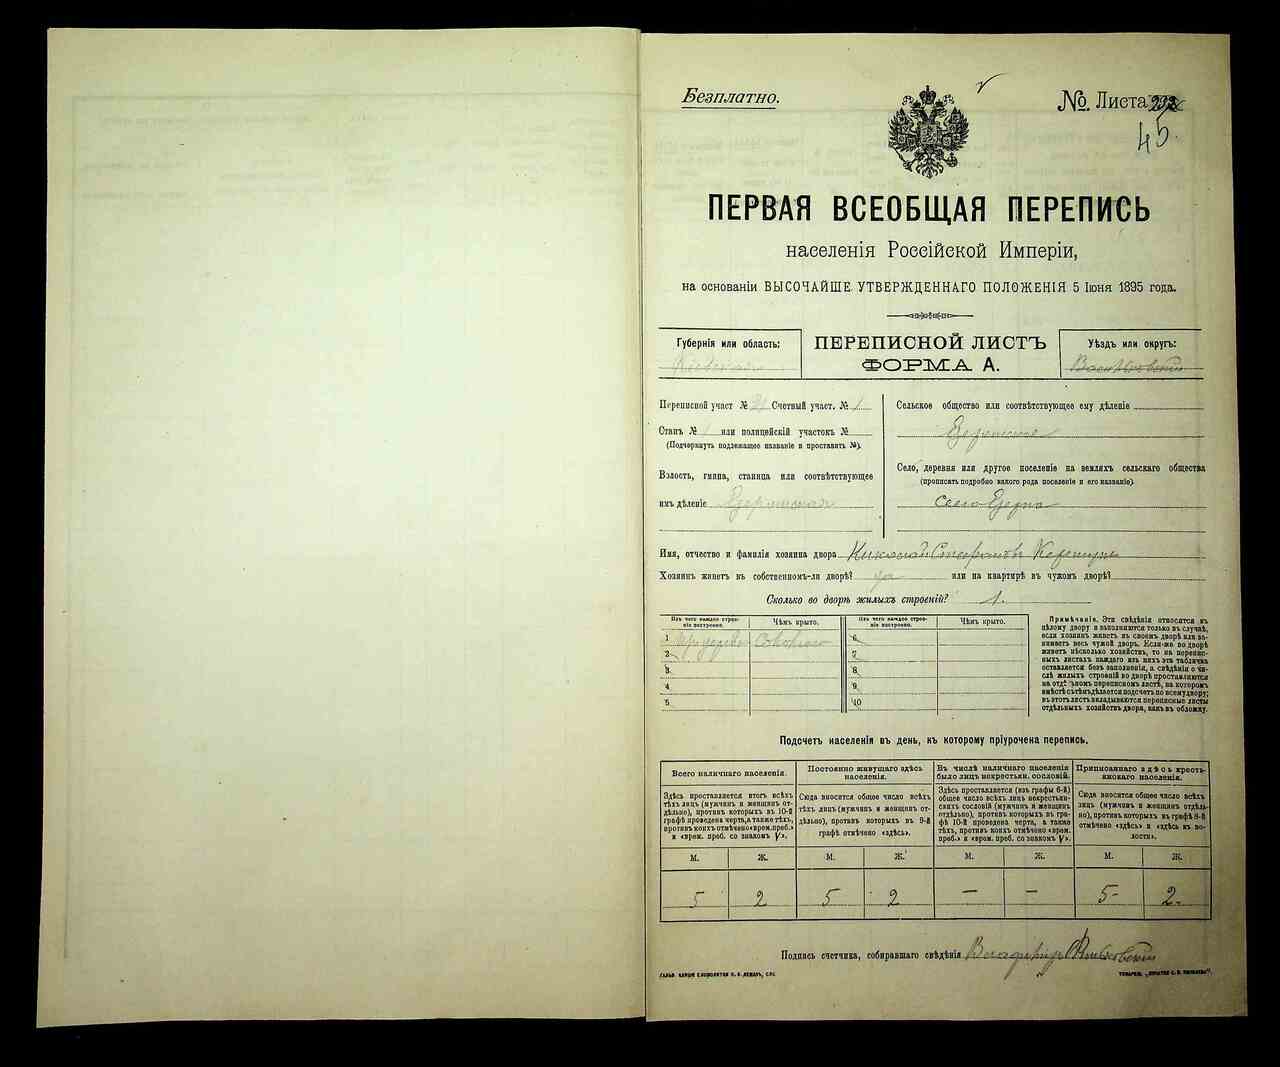 Безплатно.
№ Листа
45.
ПЕРВАЯ ВСЕОБЩАЯ ПЕРЕПИСЬ
населенія Россійской Имперіи,
на основаніи ВЫСОЧАЙШЕ УТВЕРЖДЕННАГО ПОЛОЖЕНІЯ 5 Іюня 1895 года.
Губернія или область:
Кіевская
ПЕРЕПИСНОЙ ЛИСТЪ
ФОРМА А.
Уѣздъ или округъ:
Васильковскій
Переписной участ № Счетный участ. № 1
Станъ № 1 или полицейскій участокъ №
(Подчеркнуть подлежащее названіе и проставить №).
Волость, гмина, станица или соотвѣтствующее
имъ дѣленіе
Сельское общество или соотвѣтствующее ему дѣленіе
Село, деревня или другое поселеніе на земляхъ сельскаго общества
(прописать подробно какого рода поселеніе и его названіе).
село
Имя, отчество и фамилія хозяина двора Николай Стефановъ
Хозяинъ живетъ въ собственномъ-ли дворѣ? да или на квартирѣ въ чужомъ дворѣ?
Сколько во дворѣ жилыхъ строеній? 1.
Изъ чего каждое строеніе построено. Чѣмъ крыто. Изъ чего каждое строеніе построено. Чѣмъ крыто.
1 соломою 6
2 7
3 8
4 9
5 10
Примѣчаніе. Эти свѣдѣнія относятся къ
цѣлому двору и заполняются только въ случаѣ,
если хозяинъ живетъ въ своемъ дворѣ или за-
нимаетъ весь чужой дворъ. Если-же во дворѣ
живетъ нѣсколько хозяйствъ, то на перепис-
ныхъ листахъ каждаго изъ нихъ эта табличка
оставляется безъ заполненія, а свѣдѣнія о чи-
слѣ жилыхъ строеній во дворѣ проставляются
на отдѣльномъ переписномъ листѣ, на которомъ
вмѣстѣ съ тѣмъ дѣлается подсчетъ по всему двору;
въ этотъ листъ вкладываются переписные листы
отдѣльныхъ хозяйствъ двора, какъ въ обложку.
Подсчетъ населенія въ день, къ которому пріурочена перепись.
Всего наличнаго населенія.
Здѣсь проставляется итогъ всѣхъ
тѣхъ лицъ (мужчинъ и женщинъ от-
дѣльно), противъ которыхъ въ 10-й
графѣ проведена черта, а также тѣхъ,
противъ коихъ отмѣчено «врем. преб.»
и «врем. преб. со знакомъ V».
Постоянно живущаго здѣсь
населенія.
Сюда вносится общее число всѣхъ
тѣхъ лицъ (мужчинъ и женщинъ от-
дѣльно), противъ которыхъ въ 9-й
графѣ отмѣчено «здѣсь».
Въ числѣ наличнаго населенія
было лицъ некрестьян. сословій.
Здѣсь проставляется (изъ графы 6-й)
общее число всѣхъ лицъ некрестьян-
скихъ сословій (мужчинъ и женщинъ
отдѣльно), противъ которыхъ въ гра-
фѣ 10-й проведена черта, а также
тѣхъ, противъ коихъ отмѣчено «врем.
преб.» и «врем. преб. со знакомъ V».
Приписаннаго здѣсь кресть-
янскаго населенія.
Сюда вносится общее число всѣхъ
лицъ (мужчинъ и женщинъ отдѣль-
но), противъ которыхъ въ графѣ 8-й
отмѣчено «здѣсь» и «здѣсь въ во-
лости».
М. Ж. М. Ж. М. Ж. М. Ж.
5 2 5 2 — — 5 2
Подпись счетчика, собиравшаго свѣдѣнія Владиміръ